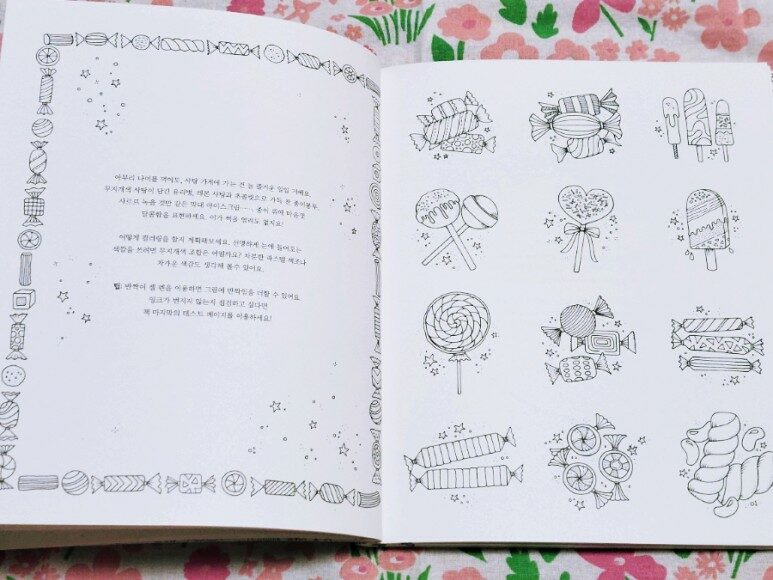 아무리 나이를 먹어도, 사탕 가게에 가는 건 늘 즐거운 일일 거예요.
무지개색 사탕이 담긴 유리병, 레몬 사탕과 초콜릿으로 가득 찬 종이봉투,
사르르 녹을 것만 같은 막대 아이스크림…… 종이 위에 마음껏
달콤함을 표현하세요. 이가 썩을 염려도 없지요!
어떻게 컬러링을 할지 계획해보세요. 선명하게 눈에 들어오는
색깔을 쓰려면 무지개색 조합은 어떨까요? 차분한 파스텔 색조나
차가운 색감도 생각해 볼 수 있어요.
팁: 반짝이 젤 펜을 이용하면 그림에 반짝임을 더할 수 있어요.
잉크가 번지지 않는지 점검하고 싶다면
책 마지막의 테스트 페이지를 이용하세요!